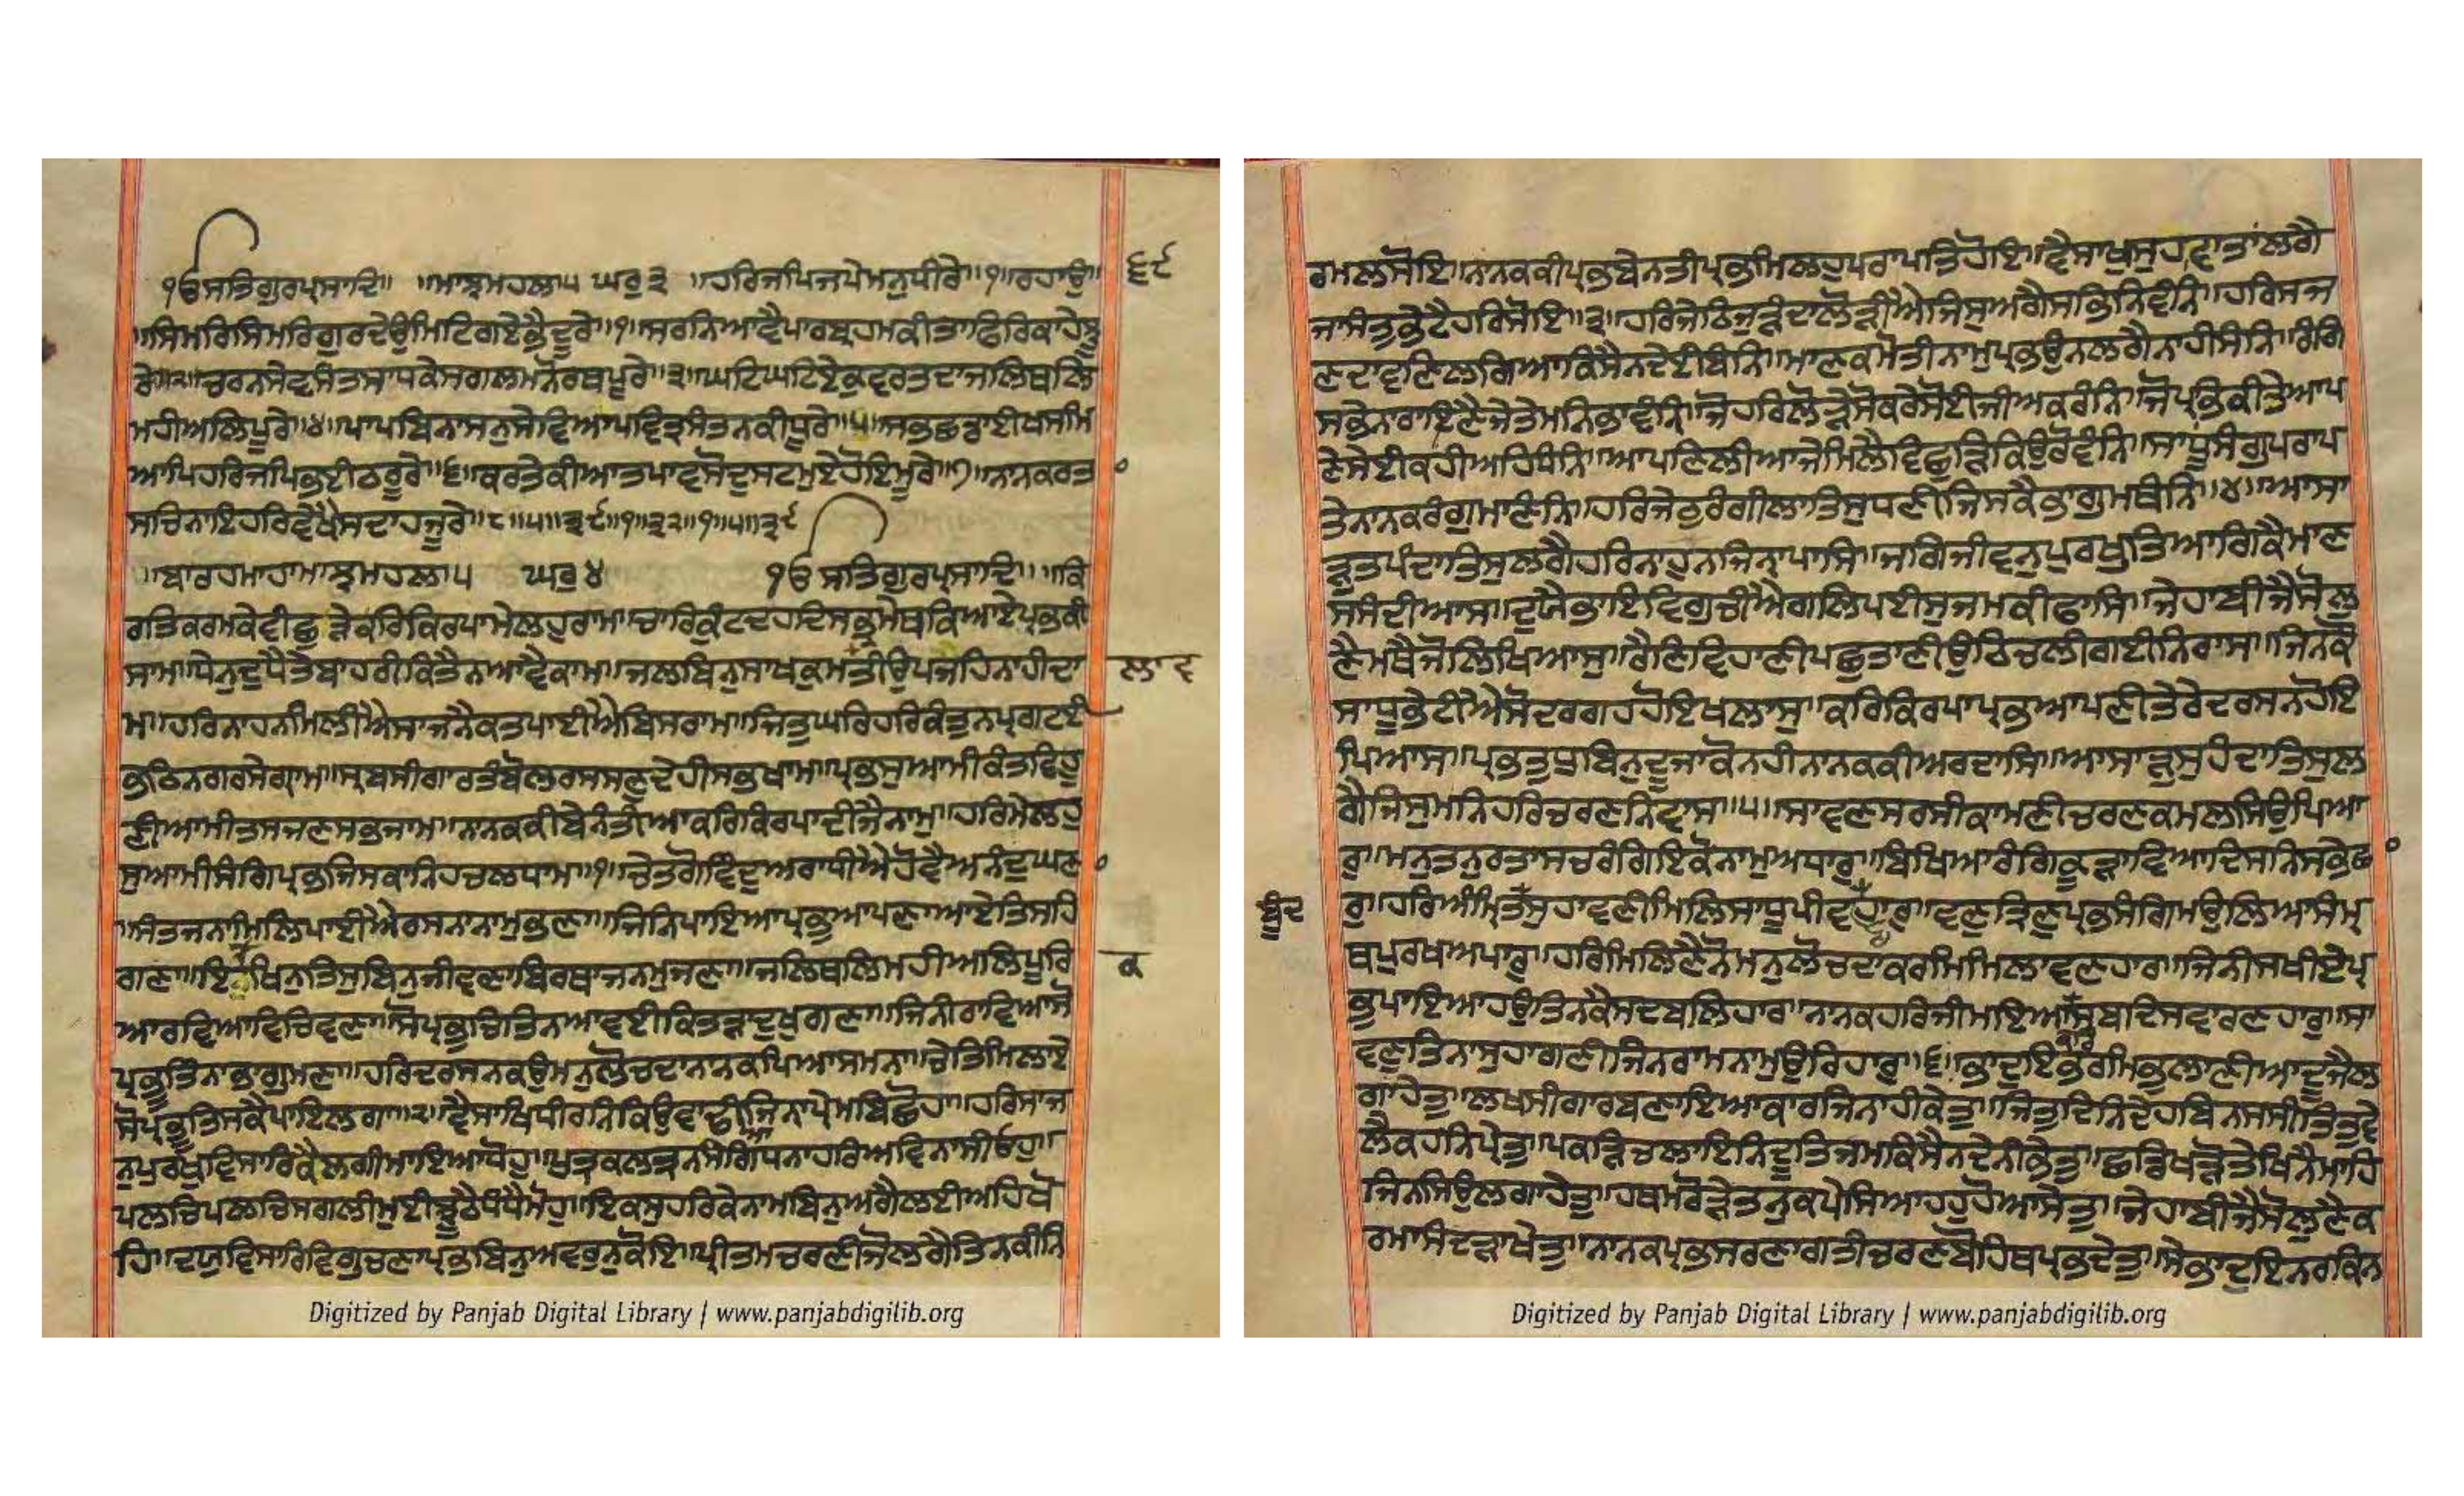 ੴਸਤਿਗੁਰਪ੍ਰਸਾਦਿ॥ ॥ਮਾਝਮਹਲਾ੫ ਘਰੁ੩ ॥ਹਰਿਜਪਿਜਪੇਮਨੁਧੀਰੇ॥੧॥ਰਹਾਉ॥ ੬੯
॥ਸਿਮਰਿਸਿਮਰਿਗੁਰਦੇਉਮਿਟਿਗਏਭੈਦੂਰੇ॥੧॥ਸਰਨਿਆਵੈਪਾਰਬ੍ਰਹਮਕੀਤਾਫਿਰਿਕਾਹੇਝੂ
ਰੇ॥੨॥ਚਰਨਸੇਵਸੰਤਸਾਧਕੇਸਗਲਮਨੋਰਥਪੂਰੇ॥੩॥ਘਟਿਘਟਿਏਕੁਵਰਤਦਾਜਲਿਥਲਿ
ਮਹੀਅਲਿਪੂਰੇ॥੪॥ਪਾਪਬਿਨਾਸਨੁਸੇਵਿਆਪਵਿਤ੍ਰਸੰਤਨਕੀਧੂਰੇ॥੫॥ਸਭਛਡਾਈਖਸਮਿ
ਆਪਿਹਰਿਜਪਿਭਈਠਰੂਰੇ॥੬॥ਕਰਤੇਕੀਆਤਪਾਵਸੋਦੁਸਟਮੁਏਹੋਇਮੂਰੇ॥੭॥ਨਾਨਕਰਤ
ਸਚਿਨਾਇਹਰਿਵੇਖੈਸਦਾਹਜੂਰੇ॥੮॥੫॥੩੯॥੧॥੩੨॥੧॥੫॥੩੯
॥ਬਾਰਹਮਾਹਾਮਾਝਮਹਲਾ੫ ਘਰੁ੪ ੴਸਤਿਗੁਰਪ੍ਰਸਾਦਿ॥ ॥ਕਿ
ਰਤਿਕਰਮਕੇਵੀਛੁੜੇਕਰਿਕਿਰਪਾਮੇਲਹੁਰਾਮ॥ਚਾਰਿਕੁੰਟਦਹਦਿਸਭ੍ਰਮੇਥਕਿਆਏਪ੍ਰਭਕੀ
ਸਾਮ॥ਧੇਨੁਦੁਧੈਤੇਬਾਹਰੀਕਿਤੈਨਆਵੈਕਾਮ॥ਜਲਬਿਨੁਸਾਖਕੁਮਤੀਉਪਜਹਿਨਾਹੀਦਾ ਲਾਵ
ਮ॥ਹਰਿਨਾਹਨਮਿਲੀਐਸਾਜਨੈਕਤਪਾਈਐਬਿਸਰਾਮ॥ਜਿਤੁਘਰਿਹਰਿਕੰਤੁਨਪ੍ਰਗਟਈ
ਭਠਿਨਗਰਸੇਗ੍ਰਾਮ॥ਸ੍ਰਬਸੀਗਾਰਤੰਬੋਲਰਸਸਣੁਦੇਹੀਸਭਖਾਮ॥ਪ੍ਰਭਸੁਆਮੀਕੰਤਵਿਹੂ
ਣੀਆਮੀਤਸਜਣਸਭਜਾਮ॥ਨਾਨਕਕੀਬੇਨੰਤੀਆਕਰਿਕਿਰਪਾਦੀਜੈਨਾਮੁ॥ਹਰਿਮੇਲਹੁ
ਸੁਆਮੀਸੰਗਿਪ੍ਰਭਜਿਸਕਾਨਿਹਚਲਧਾਮ॥੧॥ਚੇਤਗੋਵਿੰਦੁਅਰਾਧੀਐਹੋਵੈਅਨੰਦੁਘਣਾ
॥ਸੰਤਜਨਾਮਿਲਿਪਾਈਐਰਸਨਾਨਾਮੁਭਣਾ॥ਜਿਨਿਪਾਇਆਪ੍ਰਭੁਆਪਣਾਆਏਤਿਸਹਿ
ਗਣਾ॥ਇਕੁਖਿਨੁਤਿਸੁਬਿਨੁਜੀਵਣਾਬਿਰਥਾਜਨਮੁਜਣਾ॥ਜਲਿਥਲਿਮਹੀਅਲਿਪੂਰਿ ਕ
ਆਰਵਿਆਵਿਚਿਵਣਾ॥ਸੋਪ੍ਰਭੁਚਿਤਿਨਆਵਈਕਿਤੜਾਦੁਖੁਗਣਾ॥ਜਿਨੀਰਾਵਿਆਸੋ
ਪ੍ਰਭੂਤਿੰਨਾਭਾਗੁਮਣਾ॥ਹਰਿਦਰਸਨਕਉਮਨੁਲੋਚਦਾਨਾਨਕਪਿਆਸਮਨਾ॥ਚੇਤਿਮਿਲਾਏ
ਸੋਪ੍ਰਭੂਤਿਸਕੈਪਾਇਲਗਾ॥੨॥ਵੈਸਾਖਿਧੀਰਨਿਕਿਉਵਾਢੀਜਿਨਾਪ੍ਰੇਮਬਿਛੋਹੁ॥ਹਰਿਸਾਜ
ਨੁਪੁਰਖੁਵਿਸਾਰਿਕੈਲਗੀਮਾਇਆਧੋਹੁ॥ਪੁਤ੍ਰਕਲਤ੍ਰਨਸੰਗਿਧਨਾਹਰਿਅਵਿਨਾਸੀਓਹੁ॥
ਪਲਚਿਪਲਚਿਸਗਲੀਮੁਈਝੂਠੈਧੰਧੈਮੋਹੁ॥ਇਕਸੁਹਰਿਕੇਨਾਮਬਿਨੁਅਗੈਲਈਅਹਿਖੋ
ਹਿ॥ਦਯੁਵਿਸਾਰਿਵਿਗੁਚਣਾਪ੍ਰਭਬਿਨੁਅਵਰੁਨਕੋਇ॥ਪ੍ਰੀਤਮਚਰਣੀਜੋਲਗੈਤਿਨਕੀਨਿ
Digitized by Panjab Digital Library | www.panjabdigilib.org
ਰਮਲਸੋਇ॥ਨਾਨਕਕੀਪ੍ਰਭਬੇਨਤੀਪ੍ਰਭਮਿਲਹੁਪਰਾਪਤਿਹੋਇ॥ਵੈਸਾਖੁਸੁਹਾਵਾਤਾਂਲਗੈ
ਜਾਸੰਤੁਭੇਟੈਹਰਿਸੋਇ॥੩॥ਹਰਿਜੇਠਿਜੁੜੰਦਾਲੋੜੀਐਜਿਸੁਅਗੈਸਭਿਨਿਵੰਨਿ॥ਹਰਿਸਜ
ਣਦਾਵਣਿਲਗਿਆਕਿਸੈਨਦੇਈਬੰਨਿ॥ਮਾਣਕਮੋਤੀਨਾਮੁਪ੍ਰਭਉਨਲਗੈਨਾਹੀਸੰਨਿ॥ਰੰਗ
ਸਭੇਨਾਰਾਇਣੈਜੇਤੇਮਨਿਭਾਵੰਨਿ॥ਜੋਹਰਿਲੋੜੇਸੋਕਰੇਸੋਈਜੀਅਕਰੰਨਿ॥ਜੋਪ੍ਰਭਿਕੀਤੇਆਪ
ਣੇਸੇਈਕਹੀਅਹਿਧੰਨਿ॥ਆਪਣਲੀਆਜੇਮਿਲੈਵਿਛੁੜਿਕਿਉਰੋਵੰਨਿ॥ਸਾਧੂਸੰਗੁਪਰਾਪ
ਤੇਨਾਨਕਰੰਗੁਮਾਣੰਨਿ॥ਹਰਿਜੇਠੁਰੰਗੀਲਾਤਿਸੁਧਣੀਜਿਸਕੈਭਾਗੁਮਥੰਨਿ॥੪॥ਆਸਾ
ੜੁਤਪੰਦਾਤਿਸੁਲਗੈਹਰਿਨਾਹੁਨਜਿੰਨਾਪਾਸਿ॥ਜਗਿਜੀਵਨੁਪੁਰਖੁਤਿਆਗਿਕੈਮਾਣ
ਸਸੰਦੀਆਸ॥ਦੁਯੈਭਾਇਵਿਗੁਚੀਐਗਲਿਪਈਸੁਜਮਕੀਫਾਸਿ॥ਜੇਹਾਬੀਜੈਸੋਲੁ
ਣੈਮਥੈਜੋਲਿਖਿਆਸੁ॥ਰੈਣਿਵਿਹਾਣੀਪਛੁਤਾਣੀਉਠਿਚਲੀਗਈਨਿਰਾਸ॥ਜਿਨਕੌ
ਸਾਧੂਭੇਟੀਐਸੋਦਰਗਹਹੋਇਖਲਾਸੁ॥ਕਰਿਕਿਰਪਾਪ੍ਰਭਆਪਣੀਤੇਰੇਦਰਸਨਹੋਇ
ਪਿਆਸ॥ਪ੍ਰਭਤੁਧੁਬਿਨੁਦੂਜਾਕੋਨਹੀਨਾਨਕਕੀਅਰਦਾਸਿ॥ਆਸਾੜੁਸੁਹੰਦਾਤਿਸੁਲ
ਗੈਜਿਸੁਮਨਿਹਰਿਚਰਣਨਿਵਾਸ॥੫॥ਸਾਵਣਸਰਸੀਕਾਮਣੀਚਰਣਕਮਲਸਿਉਪਿਆ
ਰੁ॥ਮਨੁਤਨੁਰਤਾਸਚਰੰਗਿਇਕੋਨਾਮੁਅਧਾਰੁ॥ਬਿਖਿਆਰੰਗਕੂੜਾਵਿਆਦਿਸਨਿਸਭੇਛਾ
ਰੁ॥ਹਰਿਅੰਮ੍ਰਿਤਸੁਹਾਵਣੀਮਿਲਿਸਾਧੂਪੀਵਣਹਾਰੁ॥ਵਣੁਤਿਣੁਪ੍ਰਭਸੰਗਿਮਉਲਿਆਸੰਮ੍ਰ ਬੂੰਦ
ਥਪੁਰਖਅਪਾਰੁ॥ਹਰਿਮਿਲਣੈਨੋਮਨੁਲੋਚਦਾਕਰਮਿਮਿਲਾਵਣਹਾਰ॥ਜਿਨੀਸਖੀਏਪ੍ਰ
ਭੁਪਾਇਆਹਉਤਿਨਕੈਸਦਬਲਿਹਾਰ॥ਨਾਨਕਹਰਿਜੀਮਇਆਕਰਿਸਬਦਿਸਵਾਰਣਹਾਰੁ॥ਸਾ
ਵਣੁਤਿਨਾਸੁਹਾਗਣੀਜਿਨਰਾਮਨਾਮੁਉਰਿਹਾਰੁ॥੬॥ਭਾਦੁਇਭਰਮਿਭੁਲਾਣੀਆਦੂਜੈਲ
ਗਾਹੇਤੁ॥ਲਖਸੀਗਾਰਬਣਾਇਆਕਾਰਜਿਨਾਹੀਕੇਤੁ॥ਜਿਤੁਦਿਨਿਦੇਹਬਿਨਸਸੀਤਿਤੁਵੇ
ਲੈਕਹਨਿਪ੍ਰੇਤੁ॥ਪਕੜਿਚਲਾਇਨਿਦੂਤਜਮਕਿਸੈਨਦੇਨੀਭੇਤੁ॥ਛਡਿਖੜੋਤੇਖਿਨੈਮਾਹਿ
ਜਿਨਸਿਉਲਗਾਹੇਤੁ॥ਹਥਮਰੋੜੇਤਨੁਕਪੇਸਿਆਹਹੁਹੋਆਸੇਤੁ॥ਜੇਹਾਬੀਜੈਸੋਲੁਣੈਕ
ਰਮਾਸੰਦੜਾਖੇਤੁ॥ਨਾਨਕਪ੍ਰਭਸਰਣਾਗਤੀਚਰਣਬੋਹਿਥਪ੍ਰਭਦੇਤੁ॥ਸੇਭਾਦੁਇਨਰਕਿਨ
Digitized by Panjab Digital Library | www.panjabdigilib.org